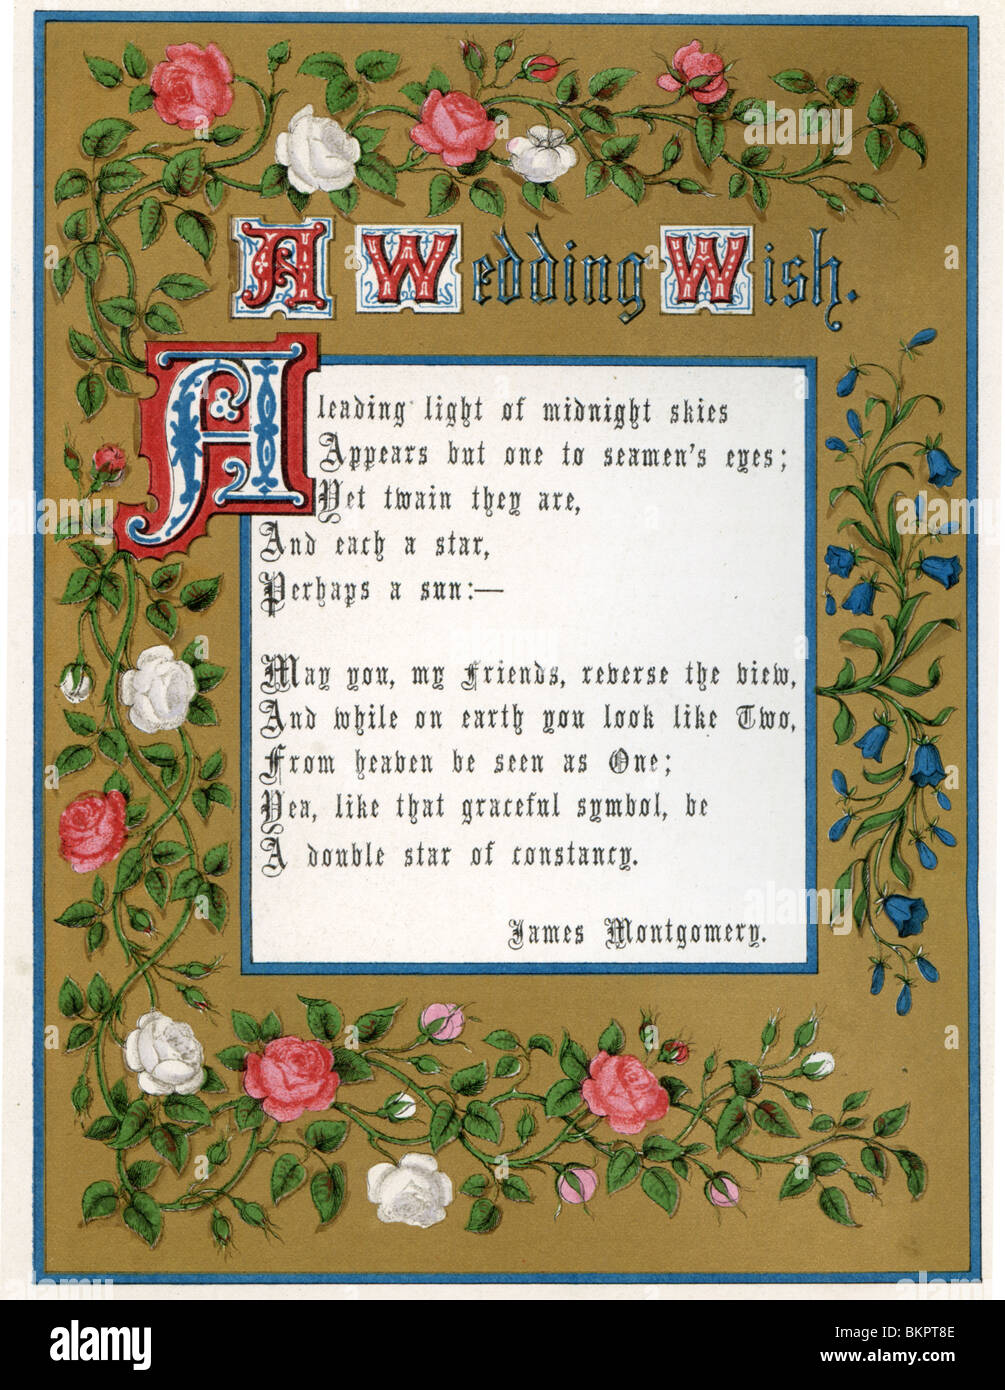 A Wedding Wish.
A leading light of midnight skies
Appears but one to seamen's eyes;
Yet twain they are,
And each a star,
Perhaps a sun:—
May you, my friends, reverse the view,
And while on earth you look like Two,
From heaven be seen as One;
Yea, like that graceful symbol, be
A double star of constancy.
James Montgomery.
alamy
Image ID: BKPT8E
www.alamy.com